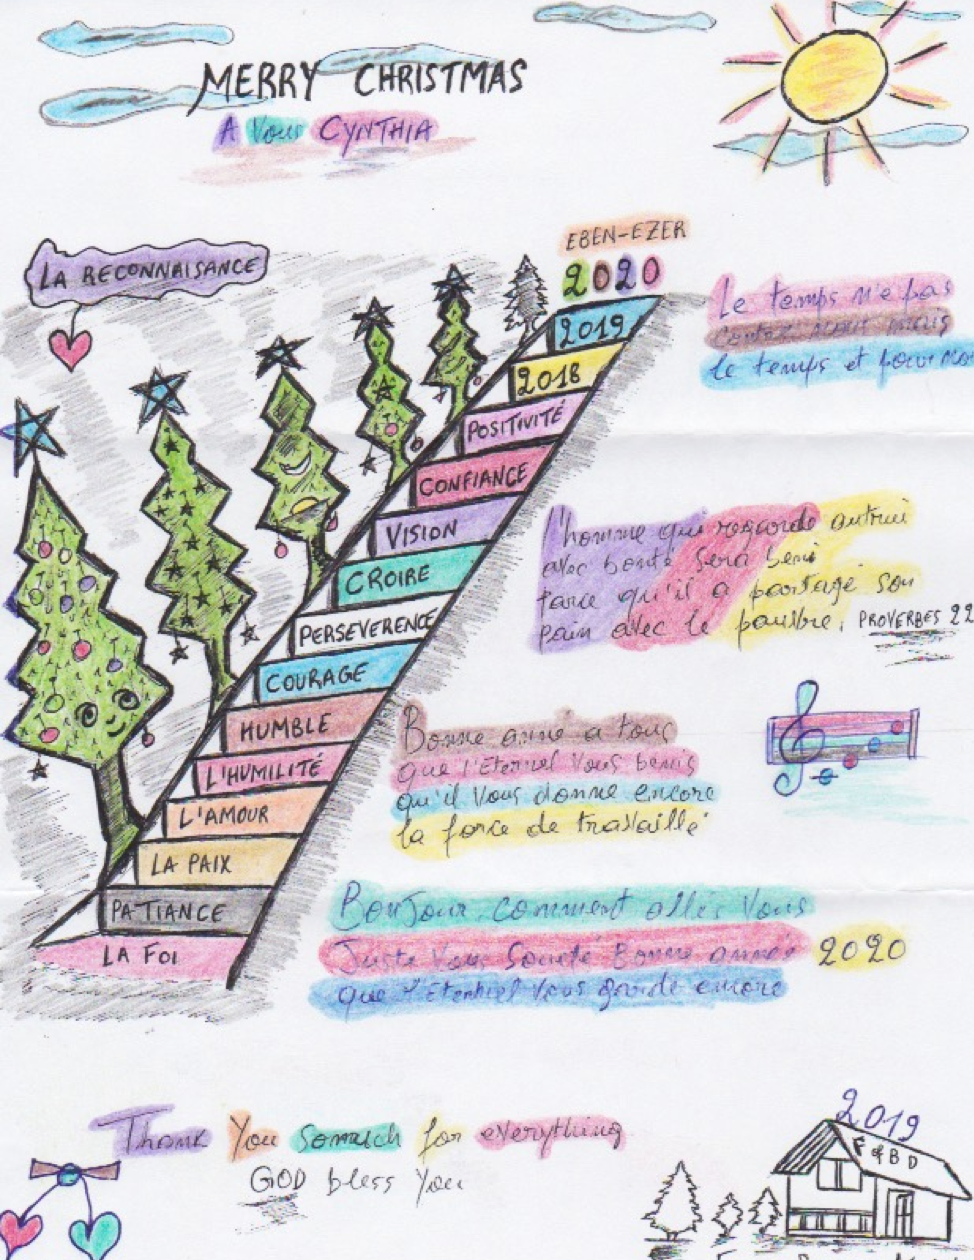 MERRY CHRISTMAS
A Vous CYNTHIA
EBEN-EZER
2020
LA RECONNAISANCE
2019
2018
POSITIVITÉ
CONFIANCE
VISION
CROIRE
PERSEVERENCE
COURAGE
HUMBLE
L'HUMILITÉ
L'AMOUR
LA PAIX
PATIANCE
LA FOI
Le temps n'e pas
contez nous mais
le temps et pour
L'homme qui regarde autrui
avec bonté sera beni
parce qu'il a partagé son
pain avec le pauvre. PROVERBES 22
Bonne anné a tous
que l'Eternel vous benis
qu'il vous donne encore
la force de travaillé
Bonjour comment allés vous
Juste vous Bonne année 2020
que vous garde encore
Thank You somuch for everything
GOD bless You
2019
F&BD